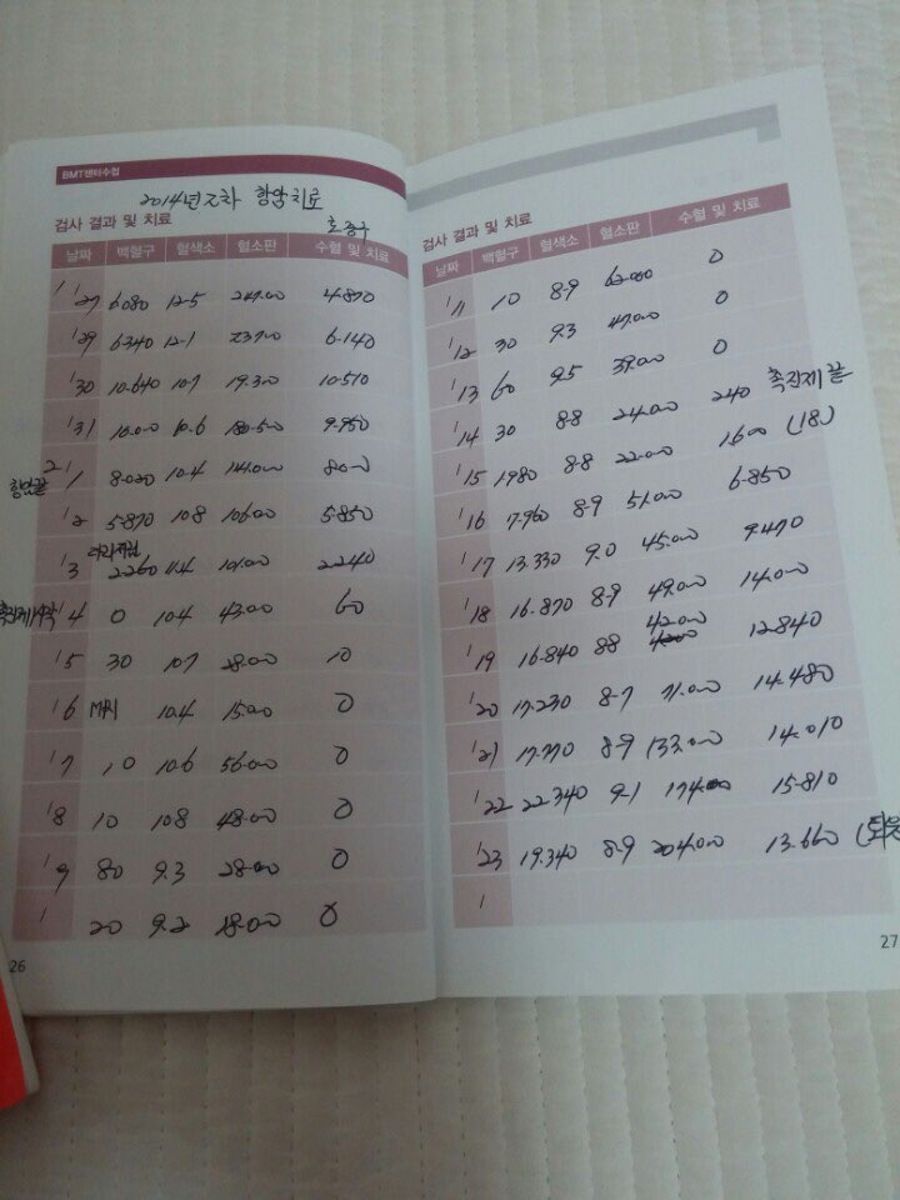 BMT센터수첩
2014년 2차 항암치료
검사 결과 및 치료
호중구
날짜 백혈구 혈색소 혈소판 수혈 및 치료
1/27 6080 12-5 247.00 4-870
/29 6340 12-1 23700 6-140
/30 10-640 10-7 19.300 10-510
/31 10.000 10.6 180-500 9-950
항암끝 2/1 8-020 10-4 141.000 8000
/2 5-870 10.8 106.00 5-850
/3 2260 11.4 101.00 2240
촉진제시작 /4 0 10.4 43.00 60
/5 30 10-7 28.000 10
/6 MRI 10.4 15.000 0
/7 10 10.6 56.000 0
/8 10 10.8 48.000 0
/9 80 9.3 28.000 0
/ 20 9.2 18.000 0
26
검사 결과 및 치료
날짜 백혈구 혈색소 혈소판 수혈 및 치료
/11 10 8-9 62.000 0
/12 30 9.3 47.000 0
/13 60 9.5 39.000 0
/14 30 8-8 24.000 240 촉진제 끝
/15 1980 8-8 22.000 1600 (18)
/16 7-960 8-9 51.000 6-850
/17 13.330 9.0 45.000 9.470
/18 16-870 8-9 49.000 14.000
/19 16-840 88 42.000 12-840
/20 17-230 8-7 71.000 14.480
/21 17-770 8-9 133.000 14.010
/22 22340 9-1 174.000 15-810
/23 19.340 8-9 204.000 13.660 (퇴원
/
27